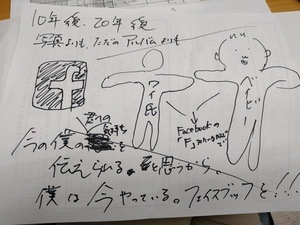 10年後、20年後
写真よりも、ただのアルバムよりも
f
アイ氏
ベイビー
Facebookの
「F」
今の僕の
気持ちを
伝えられる。と思うから。
僕は今やっている。フェイスブックを!!!